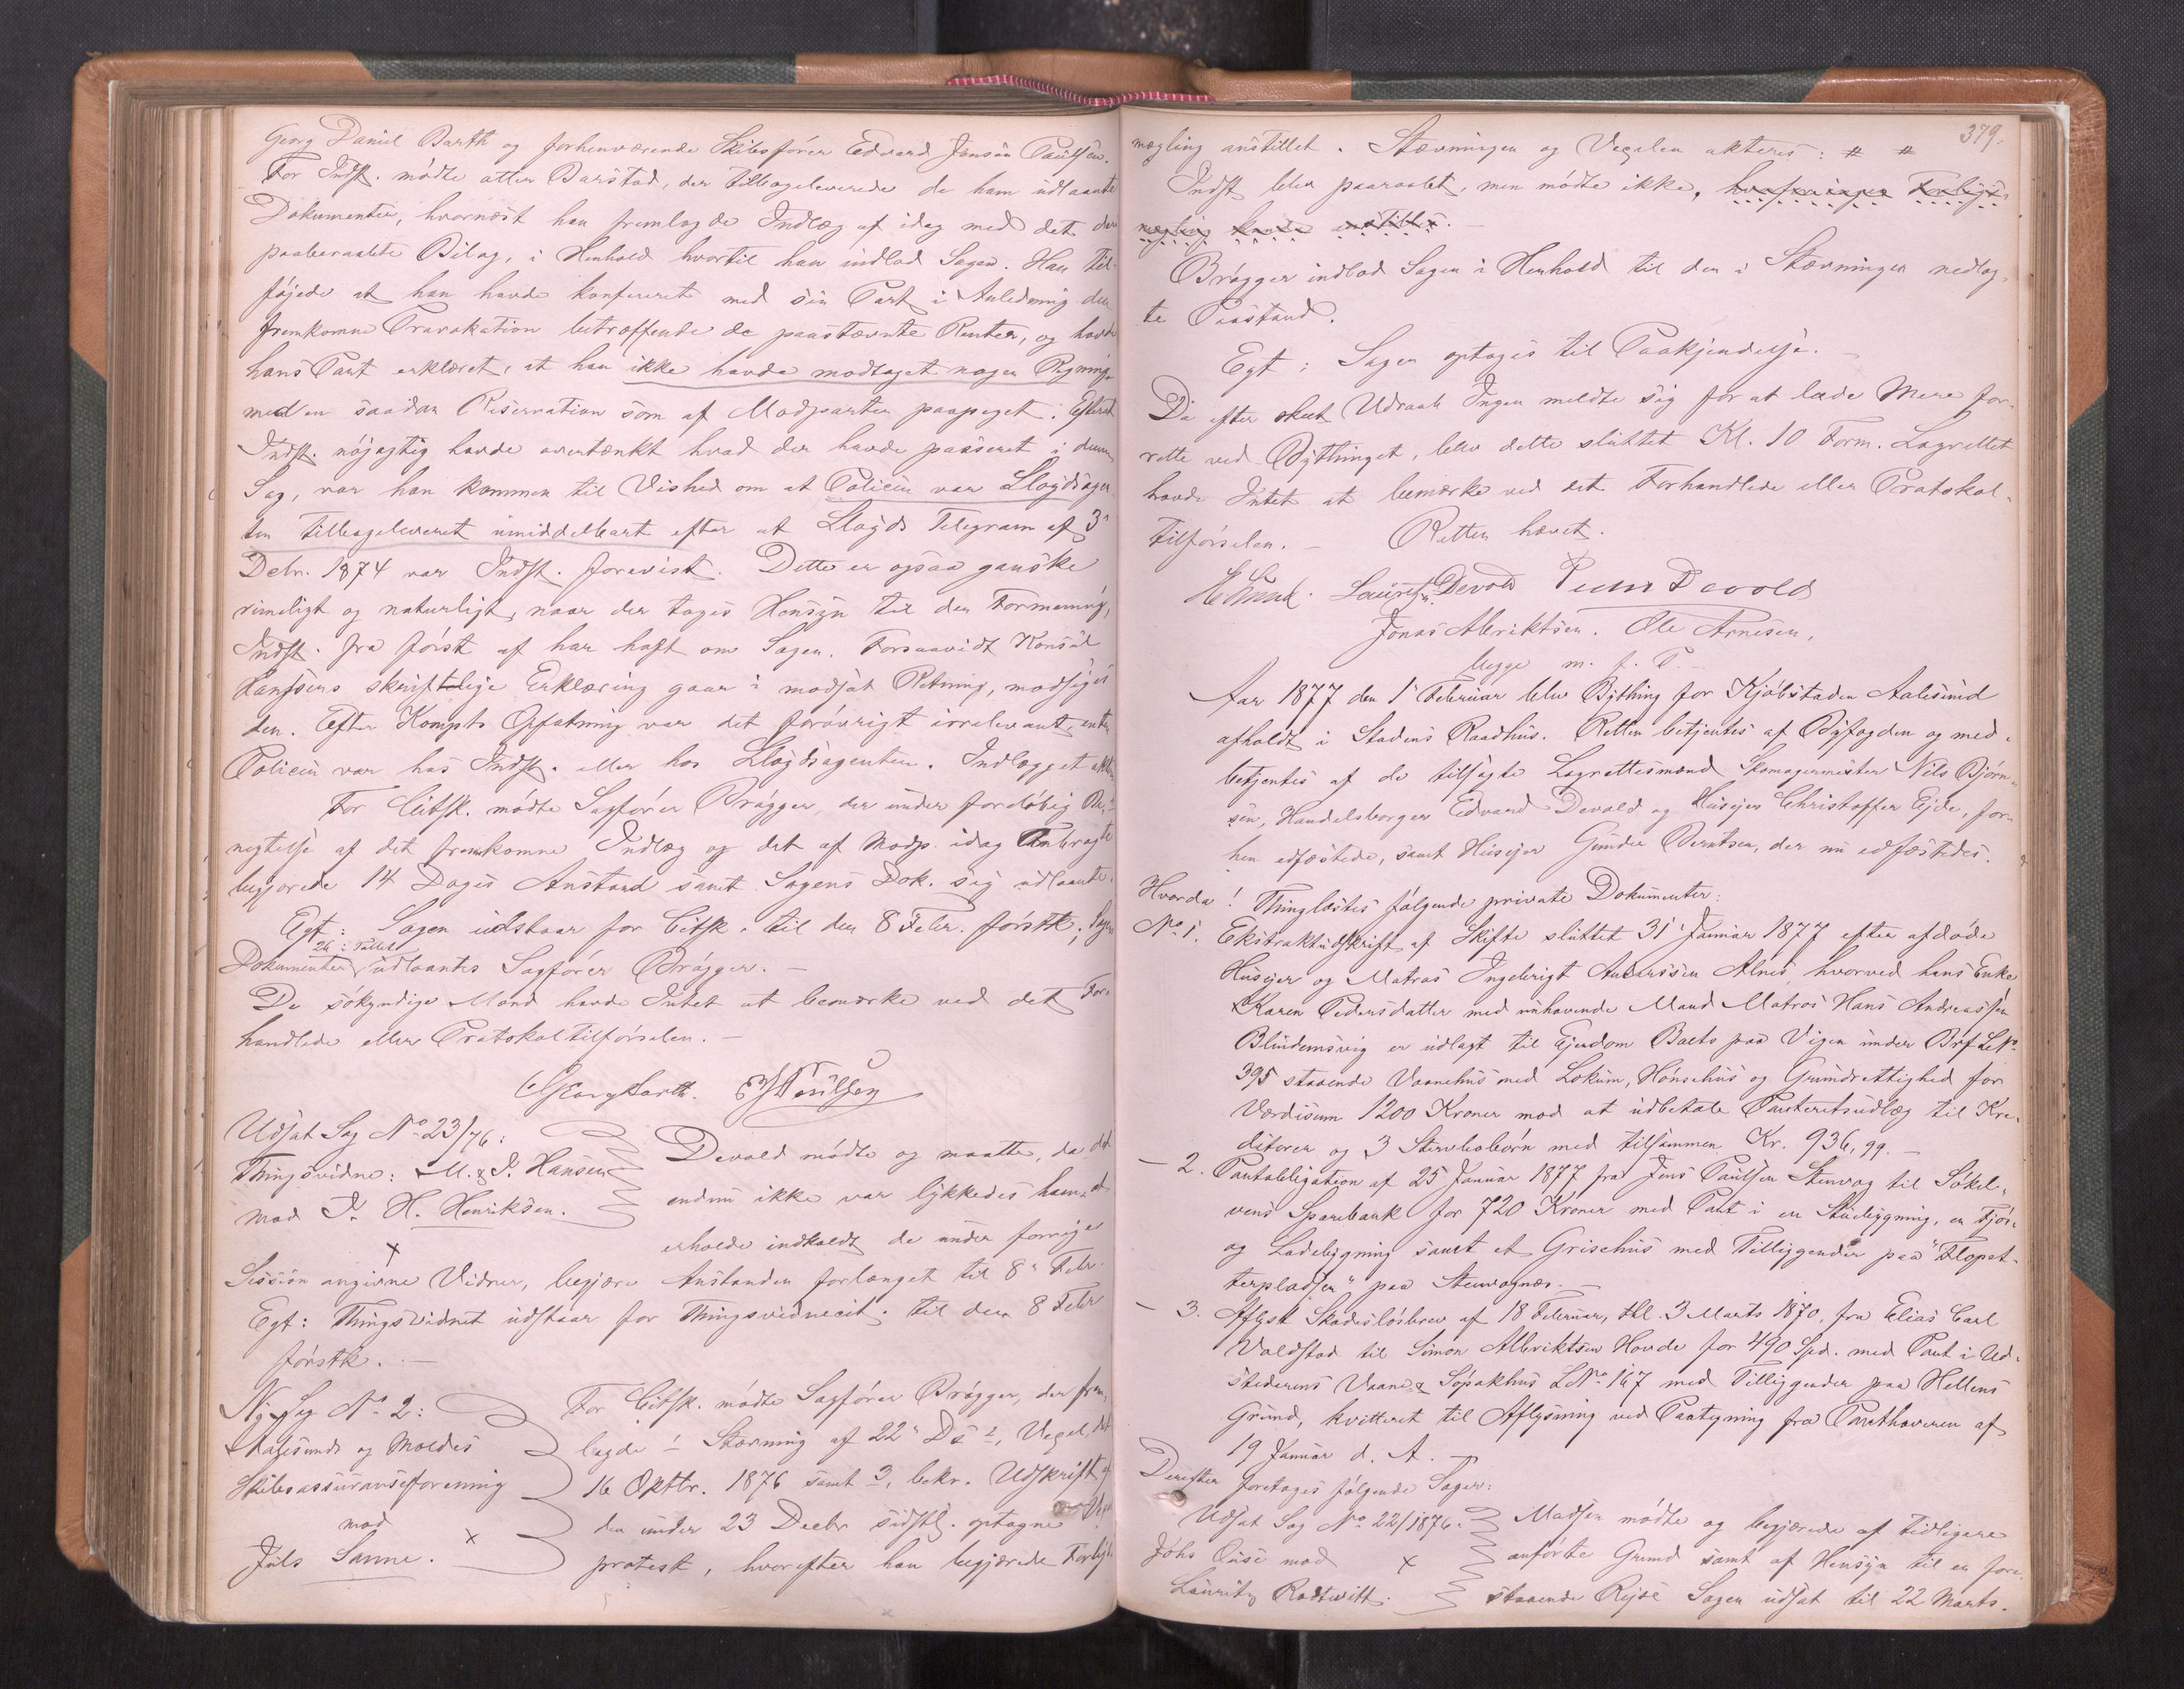 Georg Daniel Barth og forhenværende Skibsfører Edvard Jensen Paulsen.
For Indst. mødte atter Barstad, der tilbageleverede de ham udlaante
Dokumenter, hvornæst han fremlagde Indlæg af idag med det der
paaberaabte Bilag, i Henhold hvortil han indlod Sagen. Han til-
føjede at han havde konfereret med sin Part i Anledning den
fremkomne Provokation betræffende de paastævnte Renter, og havde
hans Part erklæret, at han ikke havde modtaget nogen Regning
med en saadan Reservation som af Modparten paapeget. Efterat
Indst. nøjagtig havde overtænkt hvad der havde passeret i denne
Sag, var han kommen til Vished om at Policen var Lloydsagen-
ten tilbageleveret umiddelbart efter at Lloyds Telegram af 3'
Debr. 1874 var Indst. forevist. Dette er ogsaa ganske
rimeligt og naturligt, naar der tages Hensyn til den Formening,
Indst. fra først af har haft om Sagen. Forsaavidt Konsul
Hanssens skriftelige Erklæring gaar i modsat Retning, modsiges
den. Efter Kompts Opfatning var det forøvrigt irrelevant, enten
Policen var hos Indst. eller hos Lloydsagenten. Indlægget
For Citsk. mødte Sagfører Brøgger, der under foreløbig Be-
negtelse af det fremkomne Indlæg og det af Modp. idag Anbragte
begjærede 14 Dages Anstand samt Sagens Dok. sig udlaante.
Egt: Sagen udstaar for Citsk. til den 8 Febr. førstk., Sagens
26: Tallet
Dokumenter udlaantes Sagfører Brøgger. —
De søkyndige Mænd havde Intet at bemærke ved det For-
handlede eller Protokoltilførselen. —
Georg Barth. EJPaulsen
Udsat Sag No 23/76:
Thingsvidne: M. & P. Hansen
mod P. H. Henriksen.
x
Devold mødte og maatte, da det
endnu ikke var lykkedes ham at
erholde indkaldt de under forrige
Session angivne Vidner, begjære Anstanden forlænget til 8' Febr.
Egt: Thingsvidnet udstaar for Thingsvidnecit. til den 8 Febr
førstk. —
Ny Sag No 2:
Aalesunds og Moldes
Skibsassuranseforening
mod
Juls Sanne. x
For Citsk. mødte Sagfører Brøgger, der frem-
lagde 1 Stævning af 22' Ds 2, Vexel, dat
16 Oktbr. 1876 samt 3, bekr. Udskrift af
den under 23 Decbr sidstl. optagne Vexel
protest, hvorefter han begjærede Forligs-
379.
mægling anstillet. Stævningen og Vexelen akteres: # #
Indst blev paaraabt, men mødte ikke, hvorfor ingen Forligs-
mægling kunde anstilles. —
Brøgger indlod Sagen i Henhold til den i Stævningen nedlag-
te Paastand.
Egt: Sagen optages til Paakjendelse. —
Da efter skeet Udraab Ingen meldte sig for at lade Mere for-
rette ved Bythinget, blev dette sluttet Kl. 10 Form. Lagrettet
havde Intet at bemærke ved det Forhandlede eller Protokol-
tilførselen. — Retten hævet.
Lauritz Devold Peter Devold
Jonas Albriktsen. Ole Arnesen,
begge m. f. P.
Aar 1877 den 1' Februar blev Bything for Kjøbstaden Aalesund
afholdt i Stadens Raadhus. Retten betjentes af Byfogden og med-
betjentes af de tilsagte Lagrettesmænd Skomagermester Nils Bjørn-
sen, Handelsborger Edvard Devold og Husejer Christoffer Ejde, for-
hen edfæstede, samt Husejer Gunder Berntsen, der nu edfæstedes.
Hvorda! Thinglæstes følgende private Dokumenter:
No. 1. Ekstraktudskrift af Skifte sluttet 31' Januar 1877 efter afdøde
Husejer og Matros Ingebrigt Andersen Alnes, hvorved hans Enke
Karen Pedersdatter med nuhavende Mand Matros Hans Andreassen
Blindemsvig er udlagt til Ejendom Boets paa Vigen under Brf L.No.
395 staaende Vaanehus med Lokum, Hønsehus og Grundrettighed for
Værdisum 1200 Kroner mod at udbetale Panteretsudlæg til Kre-
ditorer og 3 Stervbobørn med tilsammen Kr. 936,99. —
— 2. Pantobligation af 25 Januar 1877 fra Jens Paulsen Stenvog til Søkel-
vens Sparebank for 720 Kroner med Pant i en Stuebygning, en Fjøs-
og Ladebygning samt et Grisehus med Tilliggender paa "Klopet-
terpladsen" paa Stenvognæs. —
— 3. Aflyst Skadesløsbrev af 18 Februar, thl. 3 Marts 1870, fra Elias Carl
Valdstad til Simon Albriktsen Hovde for 490 Spd. med Pant i Ud-
stederens Vaane- & Søpakhus L.No. 167 med Tilliggender paa Hellens
Grund, kvitteret til Aflysning ved Paategning fra Panthaveren af
19 Januar d. A. —
Derefter foretoges følgende Sager:
Udsat Sag No. 22/1876.
Johs Quse mod x
Lauritz Rodtwitt.
Madsen mødte og begjærede af tidligere
anførte Grund samt af Hensyn til en fore-
staaende Rejse Sagen udsat til 22 Marts.